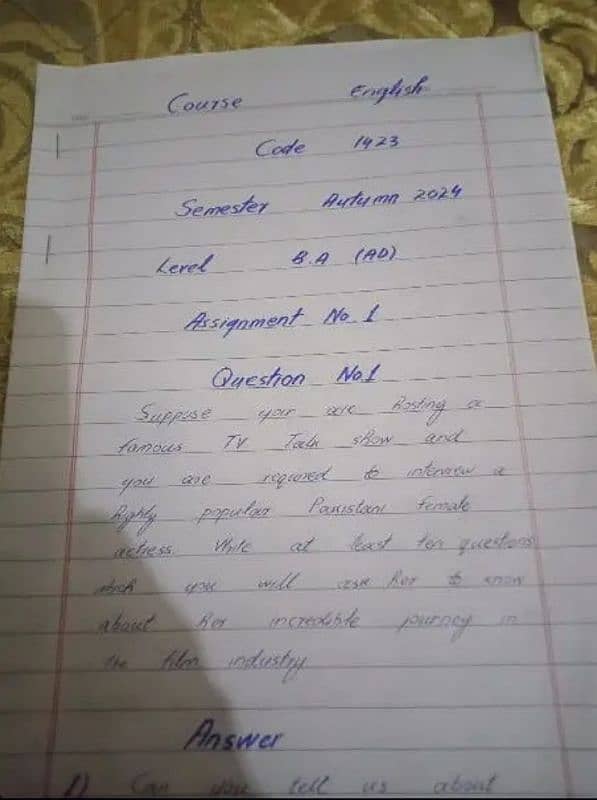 Course English
Code 1423
Semester Autumn 2024
Level B.A (AD)
Assignment No 1
Question No.1
Suppose your are hosting a
famous TV Talk show and
you are required to interview a
highly popular Pakistani female
actress. Write at least ten questions
which you will ask her to know
about her incredible journey in
the film industry
Answer
1) Can you tell us about